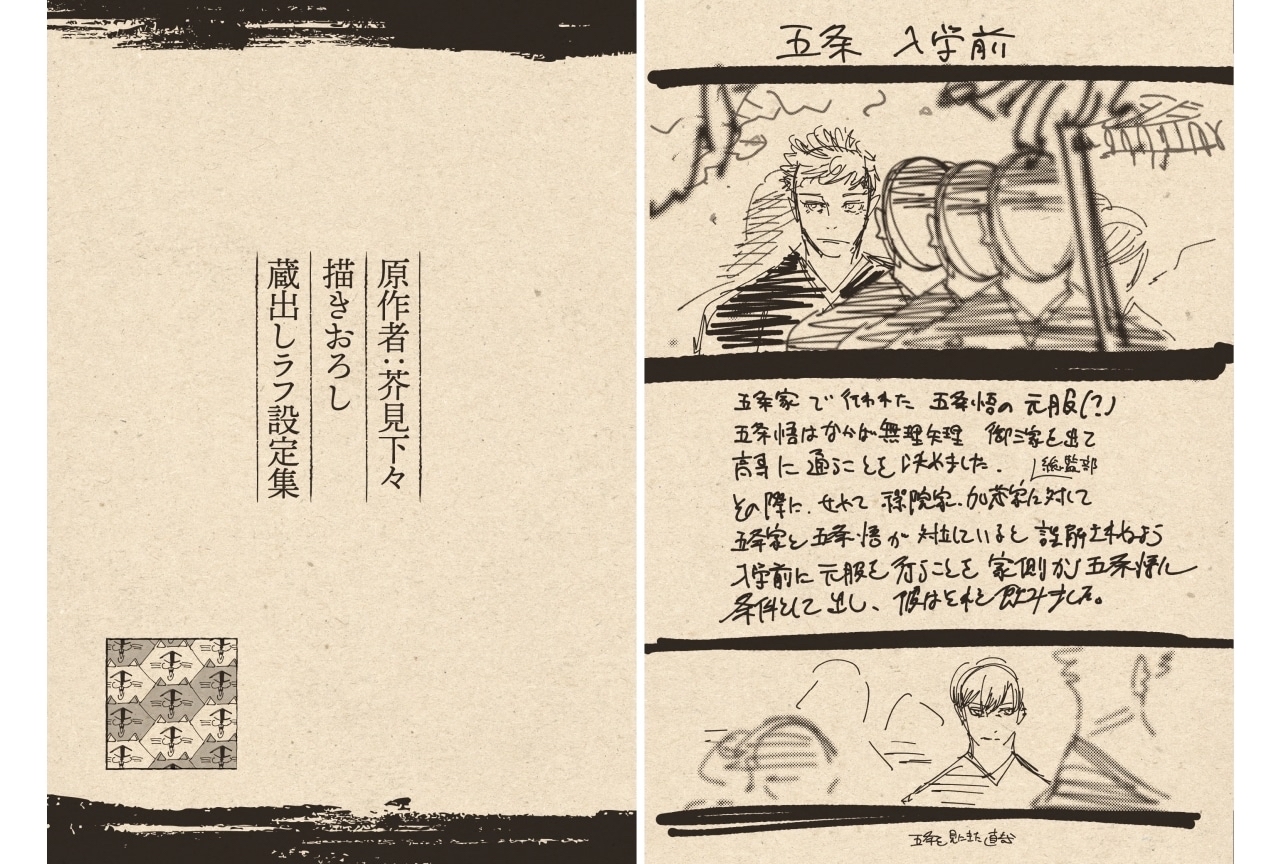 原作者:芥見下々
描きおろし
蔵出しラフ設定集
五条 入学前
五条家で行われた 五条悟の元服(?)
五条悟はなかば無理矢理 御三家を出て
高専に通うことを決めました.
総監部
その際に、せめて 禪院家、加茂家に対して
五条家と五条悟が対立していると誤解されぬよう
入学前に元服を行うことを家側が五条悟に
条件として出し、彼はそれを飲みました。
五条を見にきた直哉